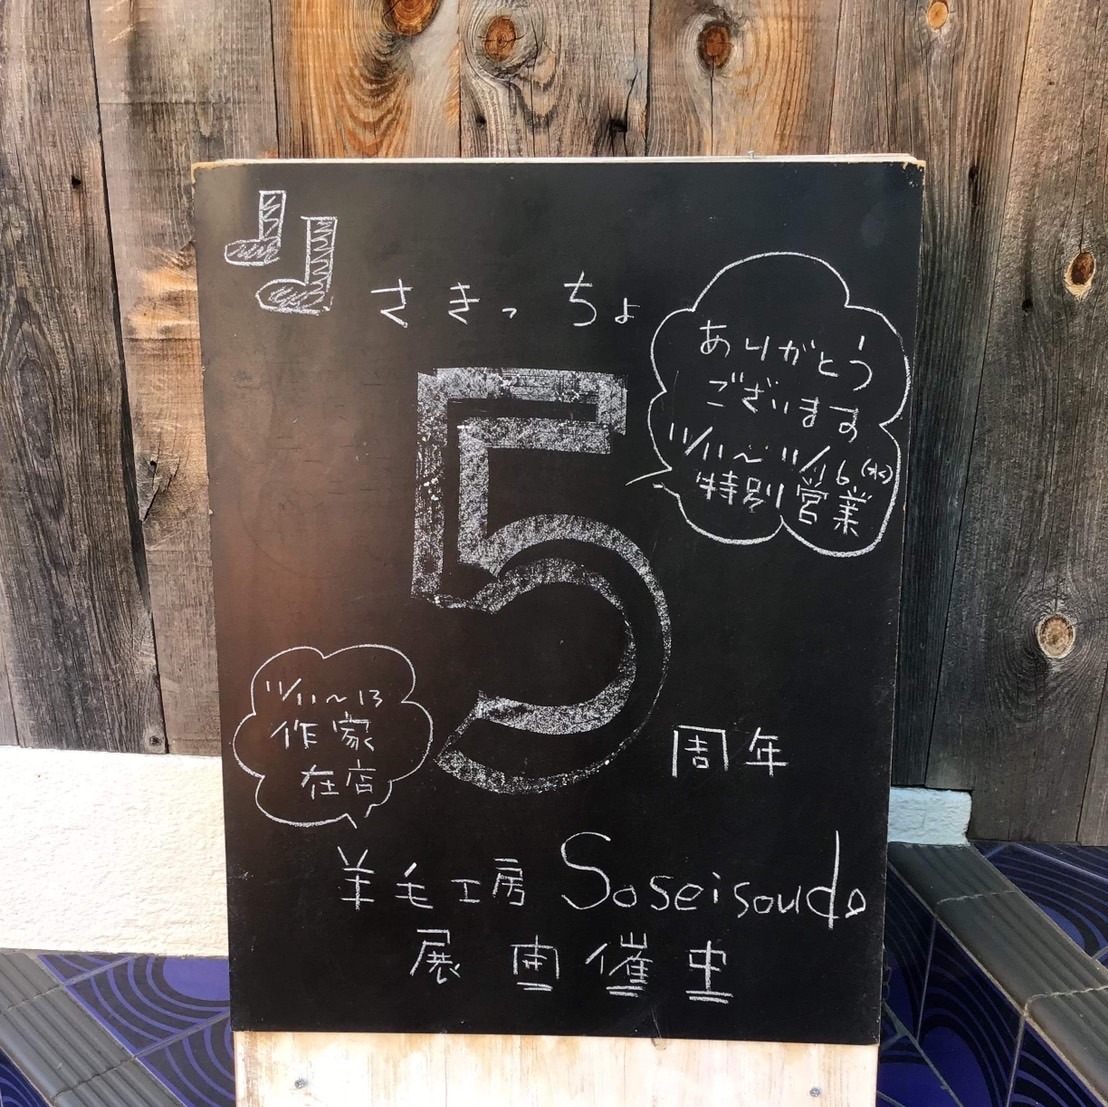 さきっちょ
5
周年
ありがとう
ございます
11/11〜11/16(水)
特別営業
11/11〜13
作家
在店
羊毛工房 Soseisoudo
展 画催中